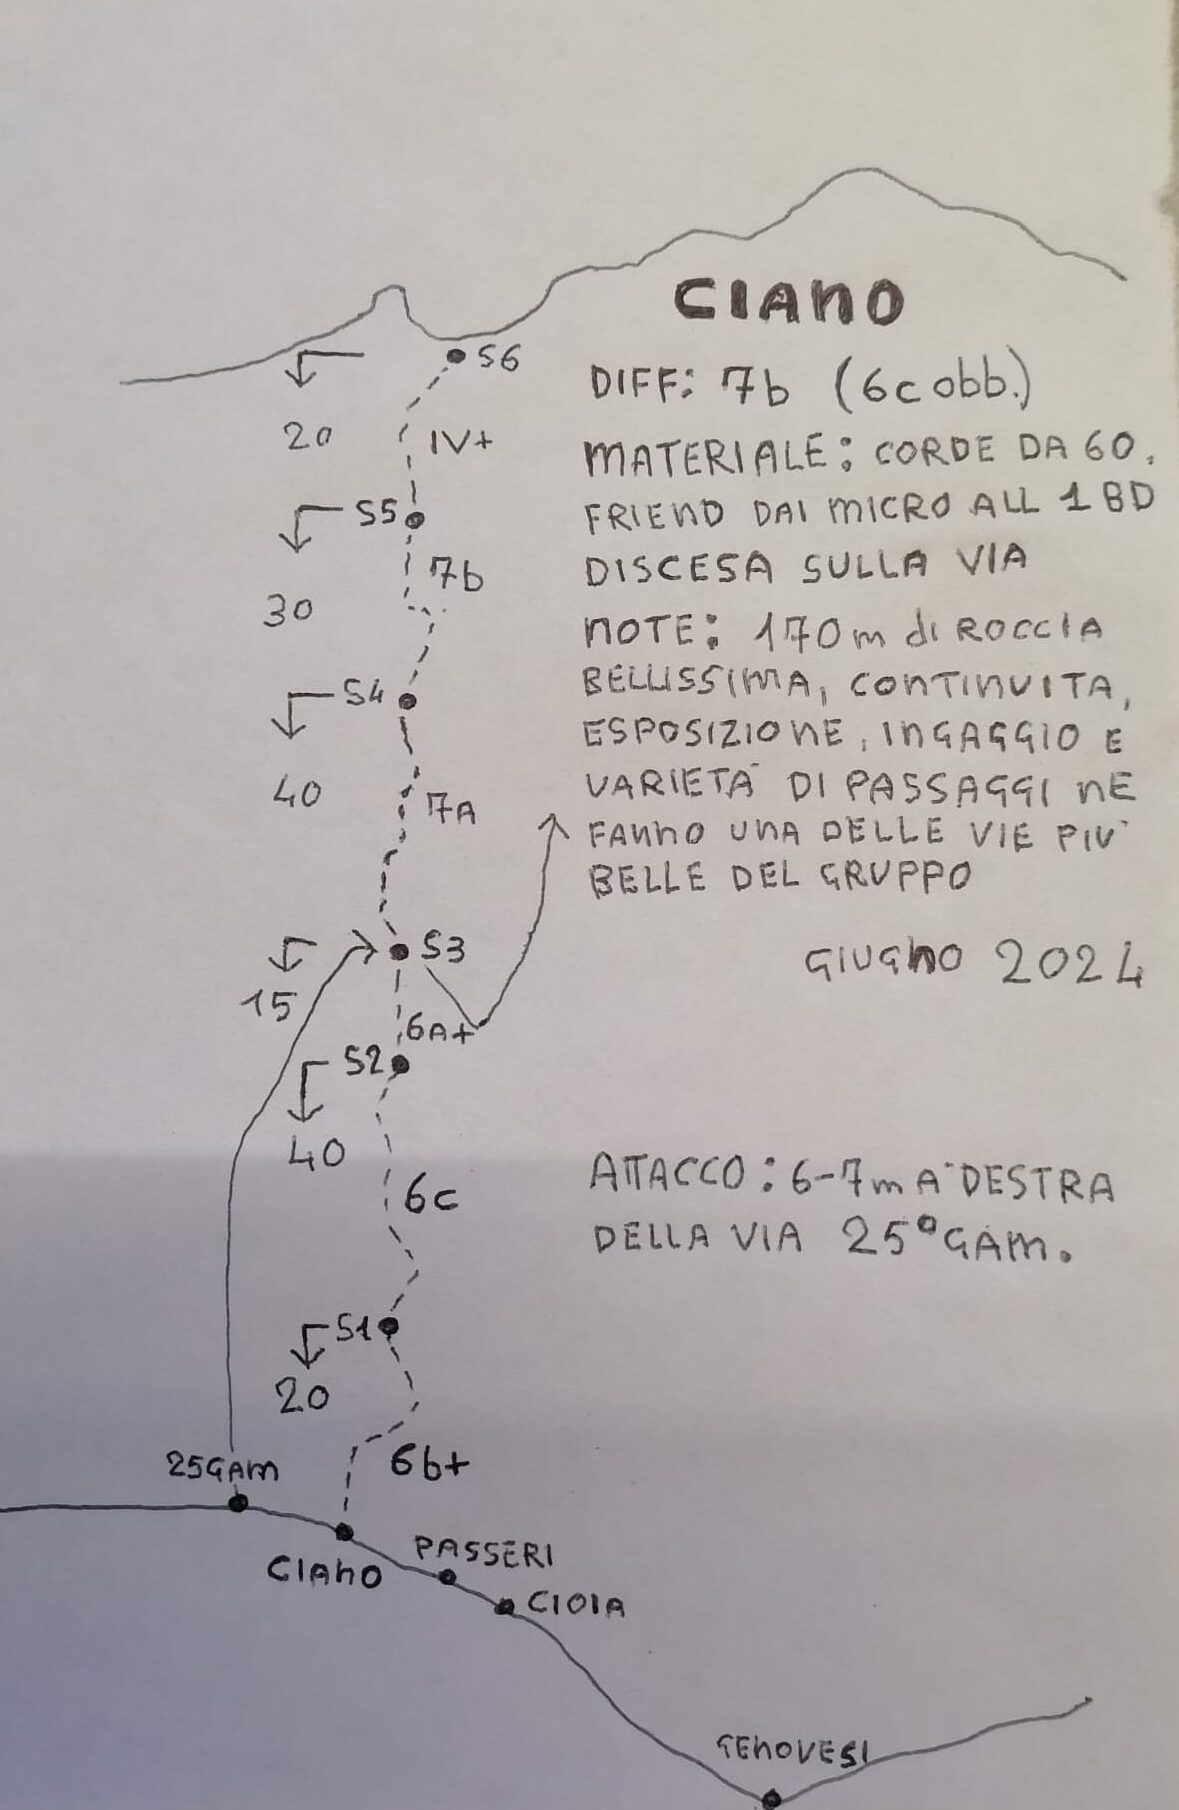 CIANO
S6
DIFF: 7b (6c obb.)
20
IV+
MATERIALE: CORDE DA 60,
S5
FRIEND DAI MICRO ALL 1 BD
7b
DISCESA SULLA VIA
30
NOTE: 170m di ROCCIA
S4
BELLISSIMA, CONTINUITA,
ESPOSIZIONE, INGAGGIO E
40
7A
VARIETA' DI PASSAGGI NE
FANNO UNA DELLE VIE PIU'
BELLE DEL GRUPPO
S3
GIUGNO 2024
15
6A+
S2
40
6c
ATTACCO: 6-7m A DESTRA
DELLA VIA 25° GAM.
S1
20
25GAM
6b+
CIANO
PASSERI
CIOIA
GENOVESI